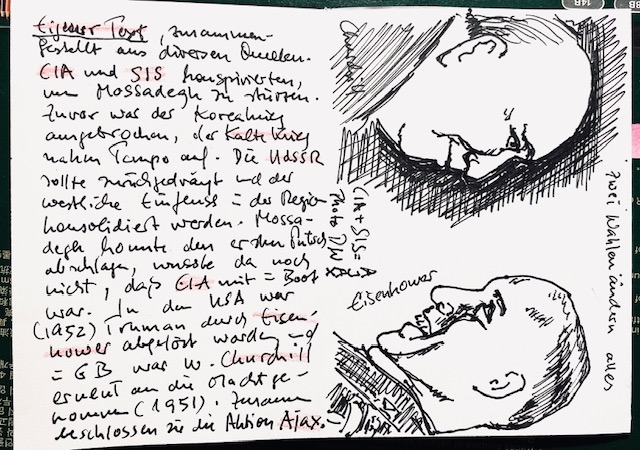 Eigener Text, zusammen-
gestellt aus diversen Quellen.
CIA und SIS konspirierten,
um Mossadegh zu stürzen.
Zuvor war der Koreakrieg
ausgebrochen, der Kalte Krieg
nahm Tempo auf. Die UdSSR
sollte zurückgedrängt und der
westliche Einfluss in der Region
konsolidiert werden. Mossa-
degh konnte den ersten Putsch
abschlagen, wusste da noch
nicht, daß CIA mit im Boot
war. In den USA war
(1952) Truman durch Eisen-
hower abgelöst worden und
in GB war W. Churchill
erneut an die Macht ge-
kommen (1951). Zusammen
beschlossen sie die Aktion Ajax.
Churchill
CIA + SIS =
Eisenhower
zwei Wahlen ändern alles